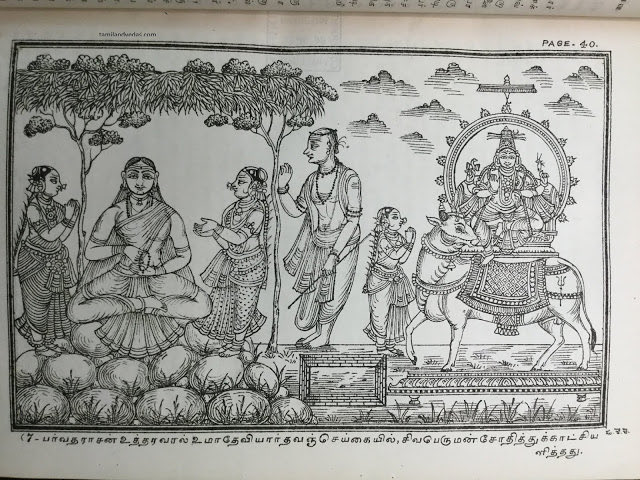 tamilandvedas.com
PAGE - 40.
(7- பர்வதராசன் உத்தரவால் உமாதேவியார் தவஞ்செய்கையில், சிவபெருமான் சோதித்துக்காட்சிய
ளித்தது.